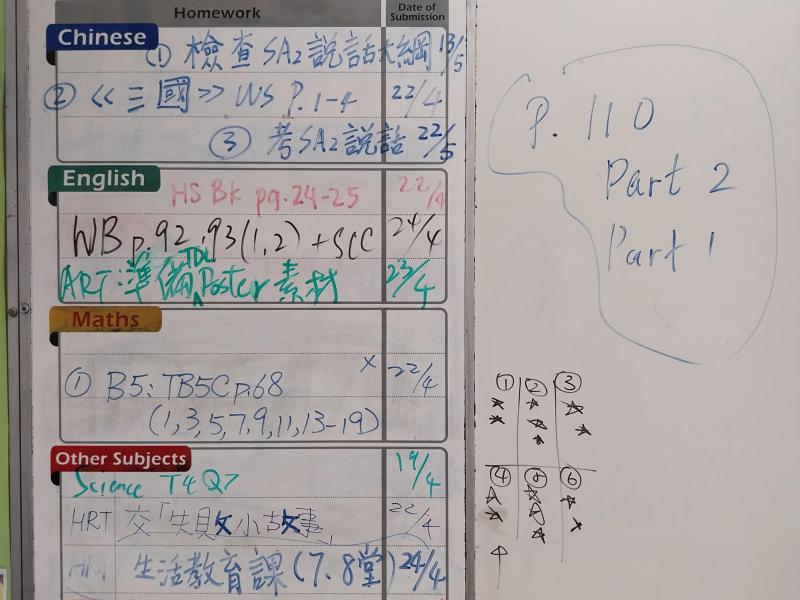 Homework
Date of Submission
Chinese
① 檢查SA2說話大綱 13/5
② 《三國》WS P.1-4 22/4
③ 考SA2說話 22/5
English
HS Bk pg.24-25 22/4
WB p.92, 93(1,2) + SCC 24/4
TDL
ART:準備 Poster素材 23/4
Maths
① B5: TB5C p.68 x 22/4
(1,3,5,7,9,11,13-19)
Other Subjects
Science T4 Q7 19/4
HRT 交「失敗小故事」 22/4
生活教育課(7、8堂) 24/4
P. 110
Part 2
Part 1
① ② ③
④ ⑤ ⑥